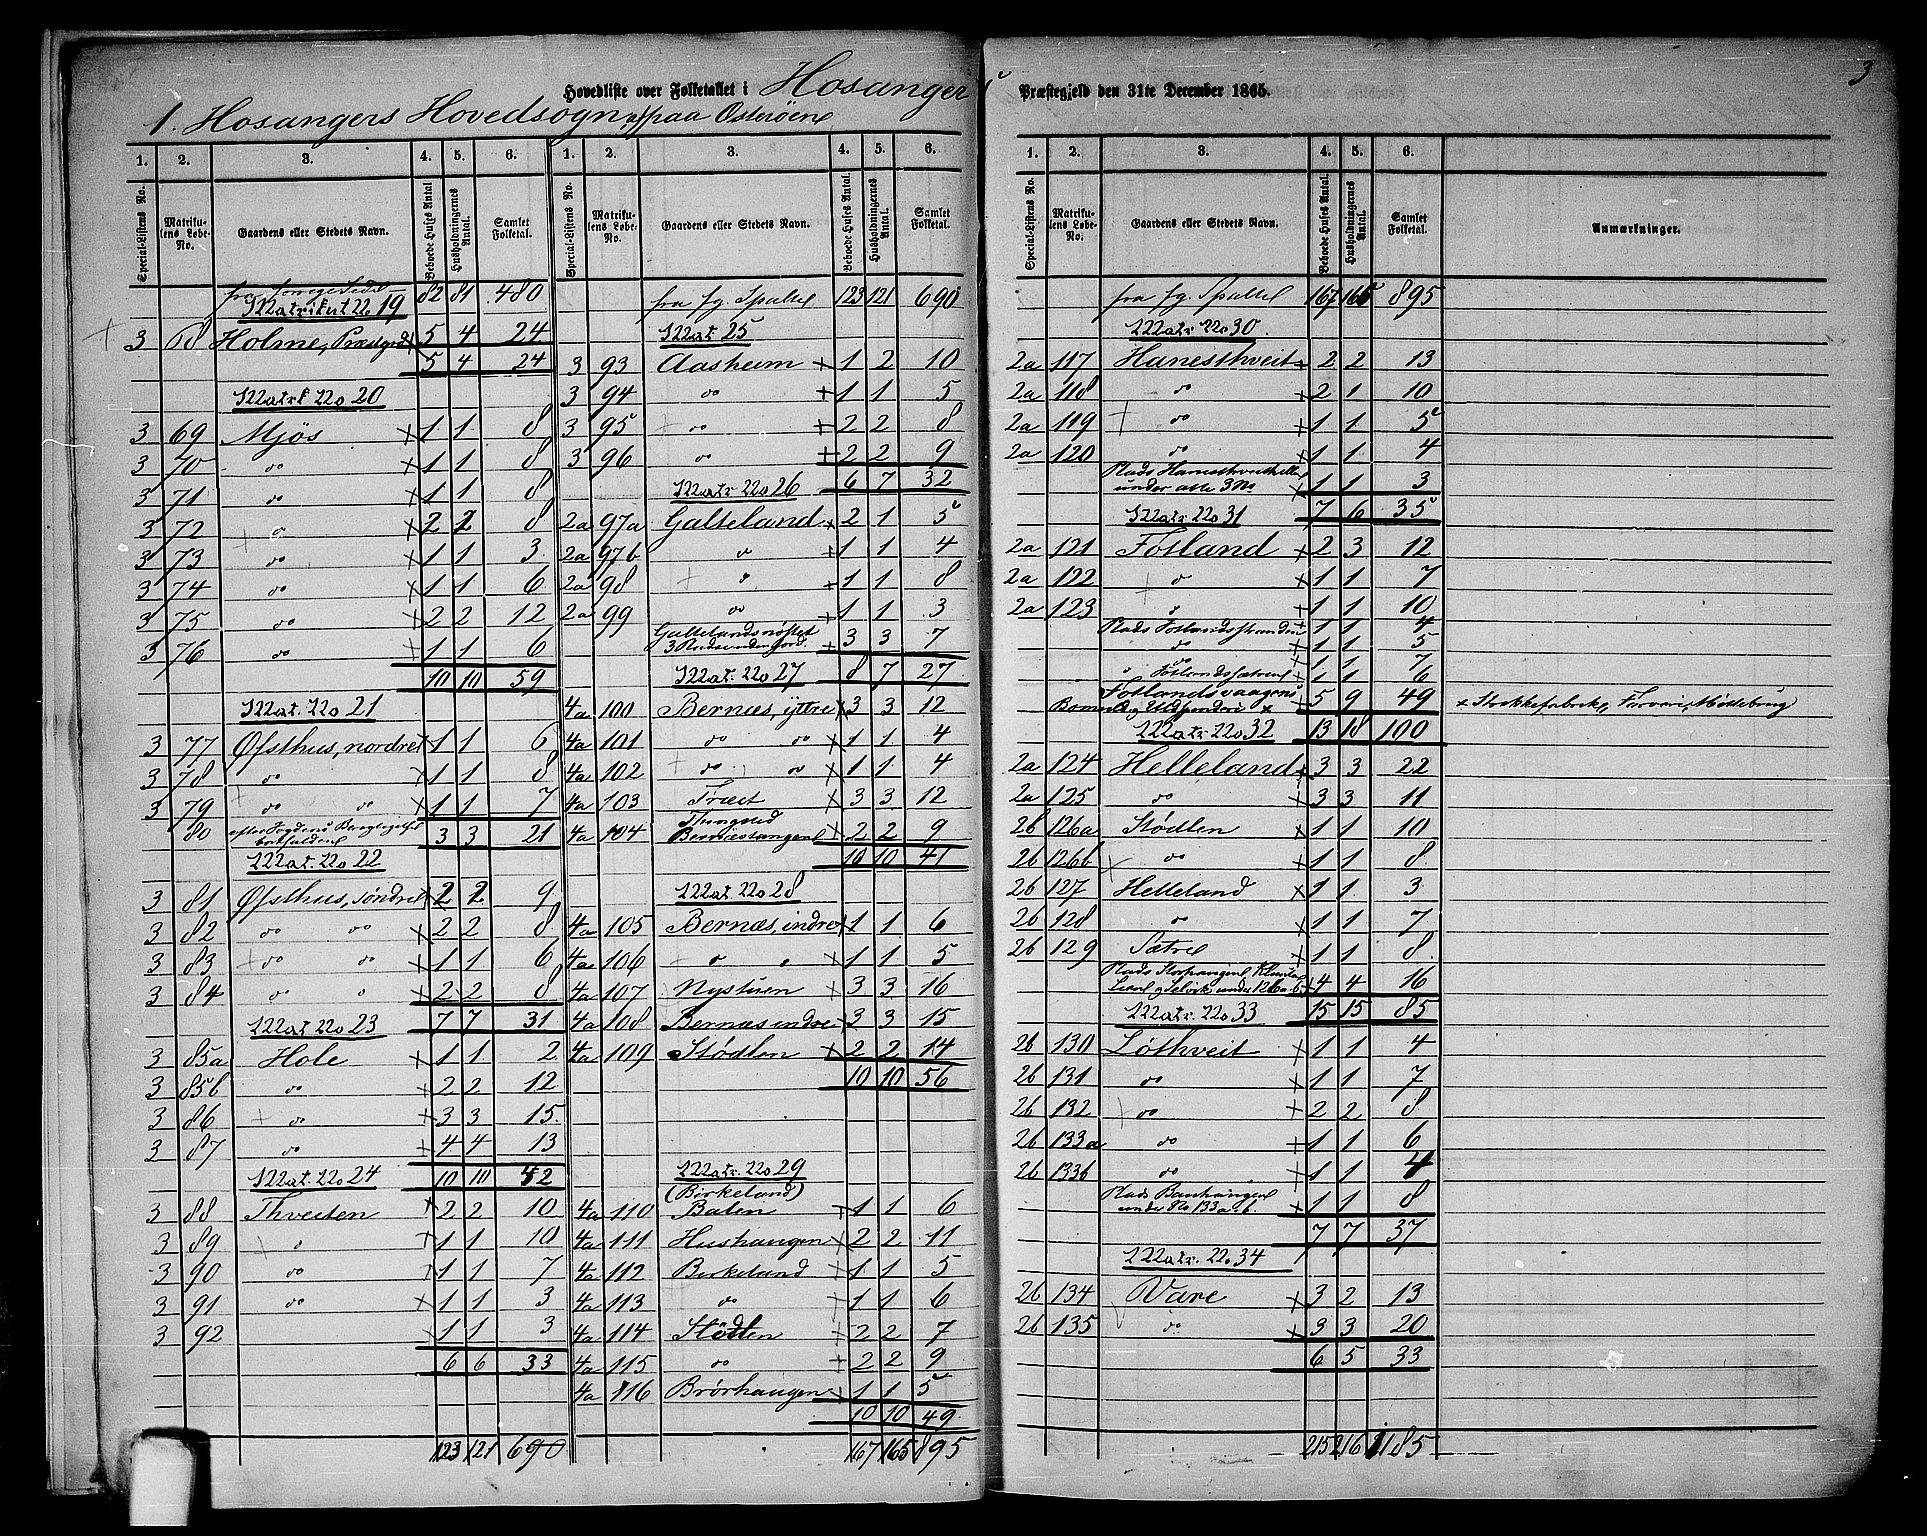 3
Hovedliste over Folketallet i Hosanger Præstegjeld den 31te December 1865.
1. Hosangers Hovedsogn, a) paa Osterøen
1. 2. 3. 4. 5. 6.
Special-Listens No. Matrikulens Løbe-No. Gaardens eller Stedets Navn. Beboede Huses Antal. Husholdningernes Antal. Samlet Folketal.
fra forrige Side 82 81 480
Matrikul No 19
3 68 Holme, Præstgrd 5 4 24
5 4 24
Matrk No 20
3 69 Mjös 1 1 8
3 70 do 1 1 8
3 71 do 1 1 8
3 72 do 2 2 8
3 73 do 1 1 3
3 74 do 1 1 6
3 75 do 2 2 12
3 76 do 1 1 6
10 10 59
Mat. No 21
3 77 Øfsthus, nordre 1 1 6
3 78 do 1 1 8
3 79 do do 1 1 7
80 efter Fogdens
bortfalden 3 3 21
Mat. No 22
3 81 Øfsthus, søndre 2 2 9
3 82 do do 2 2 8
3 83 do do 1 1 6
3 84 do do 2 2 8
Mat. No 23 7 7 31
3 85a Hole 1 1 2
3 85b do 2 2 12
3 86 do 3 3 15
3 87 do 4 4 13
Mat. No 24 10 10 42
3 88 Thveiten 2 2 10
3 89 do 1 1 10
3 90 do 1 1 7
3 91 do 1 1 3
3 92 1 1 3
6 6 33
123 121 690
1. 2. 3. 4. 5. 6.
Special-Listens No. Matrikulens Løbe-No. Gaardens eller Stedets Navn. Beboede Huses Antal. Husholdningernes Antal. Samlet Folketal.
fra fg. Spalte 123 121 690
Mat 25
3 93 Aasheim 1 2 10
3 94 do 1 1 5
3 95 do 2 2 8
3 96 do 2 2 9
Matr No 26 6 7 32
2a 97a Galteland 2 1 5
2a 97b do 1 1 4
2a 98 do 1 1 8
2a 99 do 1 1 3
Galtelandsnøstet
3 3 7
Mat. No 27 8 7 27
4a 100 Bernæs, yttre 3 3 12
4a 101 do do 1 1 4
4a 102 do do 1 1 4
4a 103 Træet 3 3 12
Thingsted
4a 104 Bernæstangen 2 2 9
10 10 41
Mat. No 28
4a 105 Bernæs, indre 1 1 6
4a 106 do do 1 1 5
4a 107 Nystuen 3 3 16
4a 108 Bernæs indre 3 3 15
4a 109 Stødlen 2 2 14
10 10 56
Matr. No 29
(Birkeland)
4a 110 Balen 1 1 6
4a 111 Hushaugen 2 2 11
4a 112 Birkeland 1 1 5
4a 113 do 1 1 6
4a 114 Stødlen 2 2 7
4a 115 do 2 2 9
4a 116 Brørhaugen 1 1 5
10 10 49
167 165 895
1. 2. 3. 4. 5. 6.
Special-Listens No. Matrikulens Løbe-No. Gaardens eller Stedets Navn. Beboede Huses Antal. Husholdningernes Antal. Samlet Folketal. Anmærkninger.
fra fg. Spalte 167 165 895
Matr No 30.
2a 117 Hanesthveit 2 2 13
2a 118 do 2 1 10
2a 119 do 1 1 5
2a 120 do 1 1 4
Plads
under alle 3 No 1 1 3
Matr. No 31 7 6 35
2a 121 Fotland 2 3 12
2a 122 do 1 1 7
2a 123 do 1 1 10
Plads Fotlandsstranden 1 1 4
do 1 1 5
do 1 1 7
Fotlandssætren 1 1 6
Fotlandsvaagens
5 9 49 x Strikkefabrik, Farveri, Møllebrug
Matr No 32 13 18 100
2a 124 Helleland 3 3 22
2a 125 do 3 3 11
2b 126a Stødlen 1 1 10
2b 126b do 1 1 8
2b 127 Helleland 1 1 3
2b 128 do 1 1 7
2b 129 Sætre 1 1 8
Plads Storhaugen
under 126a-b 4 4 16
Matr. No 33 15 15 85
2b 130 Løthveit 1 1 4
2b 131 do 1 1 7
2b 132 do 2 2 8
2b 133a do 1 1 6
2b 133b do 1 1 4
Plads Bauhaugen
under No 133a-b. 1 1 8
7 7 37
Matr. No. 34
2b 134 Vare 3 2 13
2b 135 do 3 3 20
6 5 33
215 216 1185